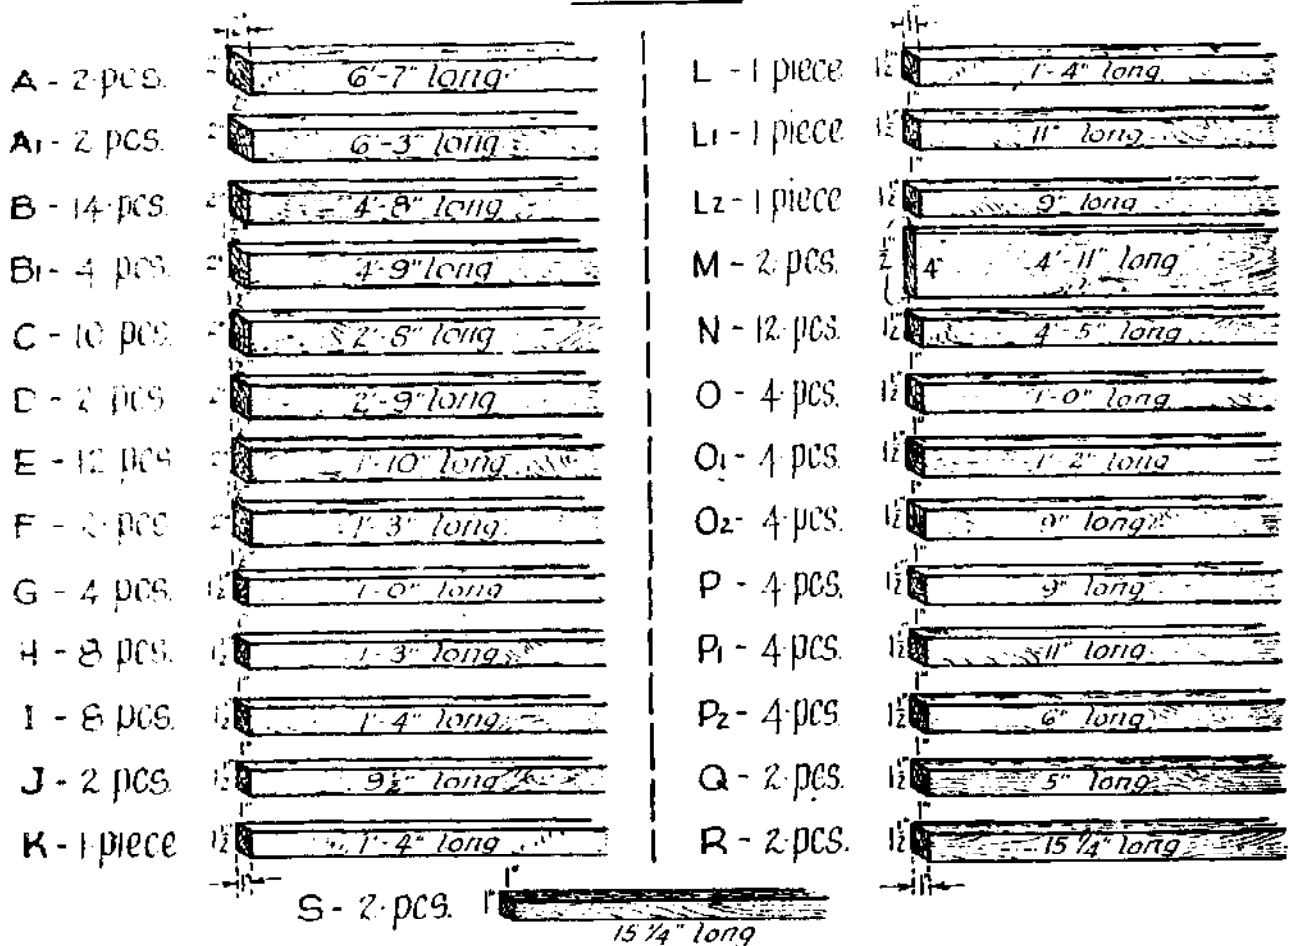 A - 2 pcs. 2" 6'-7" long
A1 - 2 pcs. 2" 6'-3" long
B - 14 pcs. 2" 4'-8" long
B1 - 4 pcs. 2" 4'-9" long
C - 10 pcs. 2" 2'-8" long
D - 2 pcs. 2" 2'-9" long
E - 12 pcs 2" 1'-10" long
F - pcs 2" 1'-3" long
G - 4 pcs. 1½" 1'-0" long
H - 8 pcs. 1½" 1'-3" long
I - 8 pcs. 1½" 1'-4" long
J - 2 pcs. 1½" 9½" long
K - 1 piece 1½" 1'-4" long
L - 1 piece 1½" 1'-4" long
L1 - 1 piece 1½" 11" long
L2 - 1 piece 1½" 9" long
M - 2 pcs. ½" 4" 4'-11" long
N - 12 pcs. 1½" 4'-5" long
O - 4 pcs. 1½" 1'-0" long
O1 - 4 pcs. 1½" 1'-2" long
O2 - 4 pcs. 1½" 9" long
P - 4 pcs. 1½" 9" long
P1 - 4 pcs. 1½" 11" long
P2 - 4 pcs. 1½" 6" long
Q - 2 pcs. 1½" 5" long
R - 2 pcs. 1½" 15¼" long
S - 2 pcs. 1" 1" 15¼" long